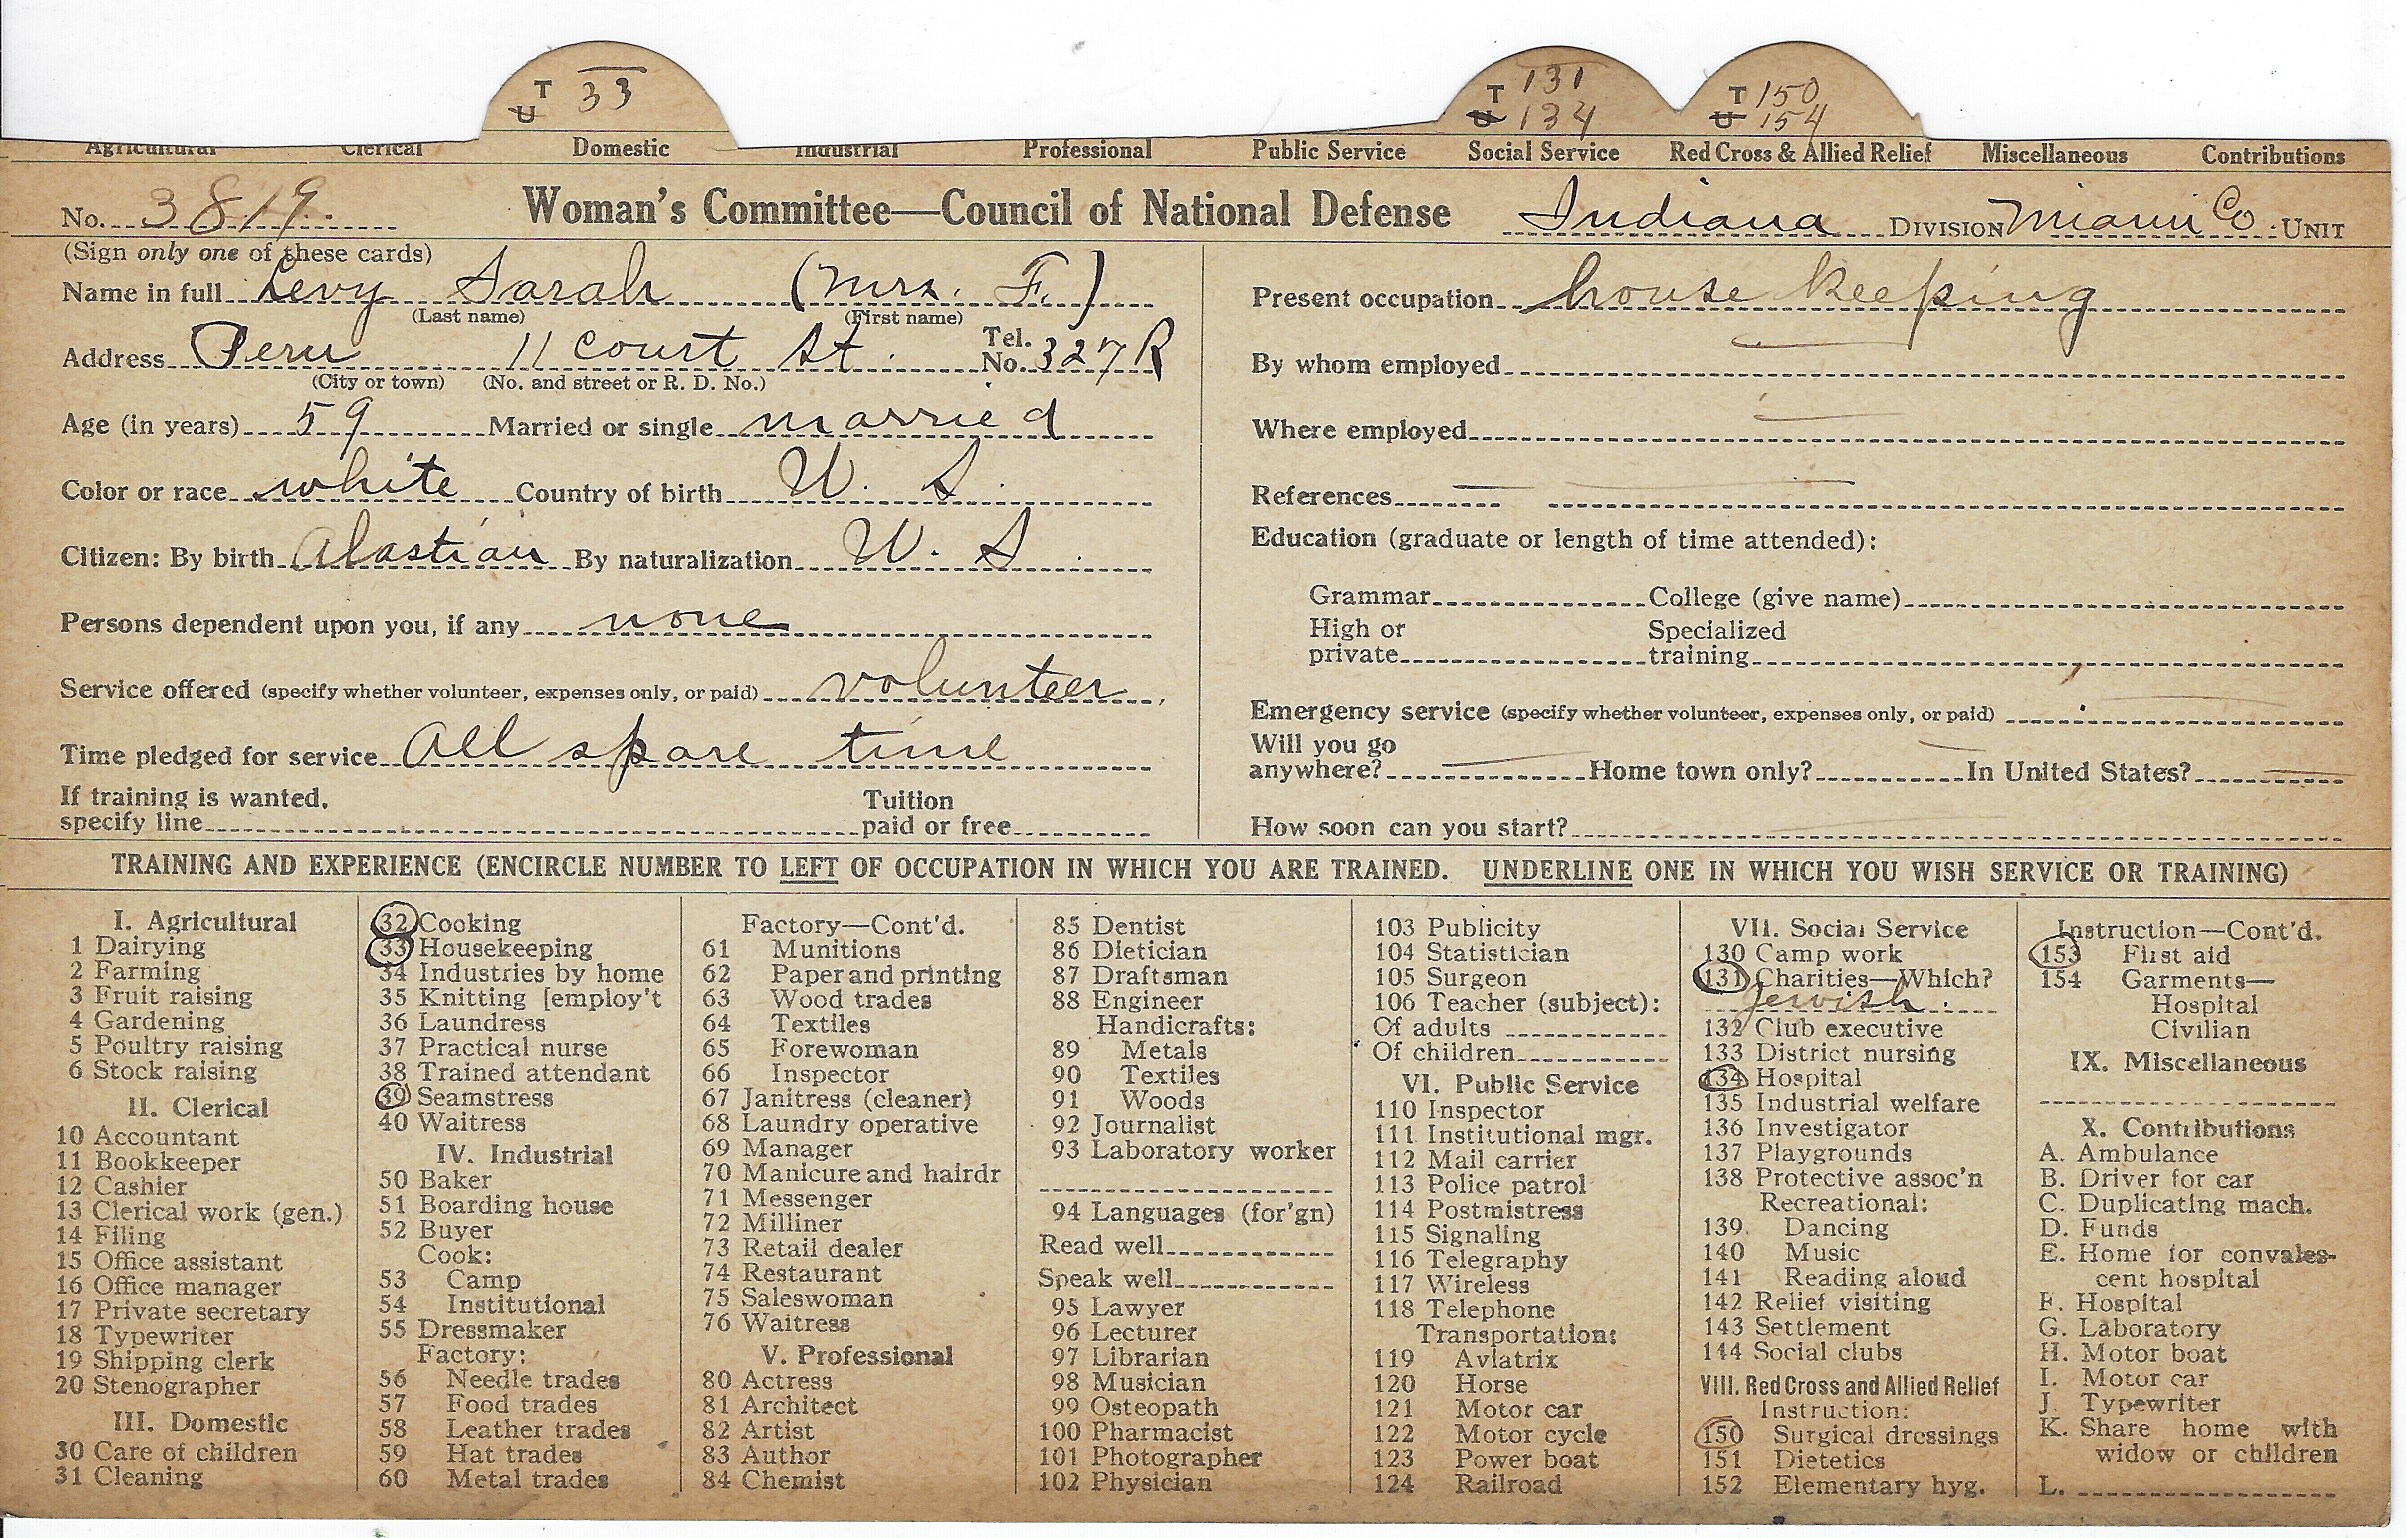 T 33
U
T 131
U 134
T 150
U 154
Agricultural Clerical Domestic Industrial Professional Public Service Social Service Red Cross & Allied Relief Miscellaneous Contributions
No. 3819. Woman's Committee—Council of National Defense Indiana DIVISION Miami Co. UNIT
(Sign only one of these cards)
Name in full Levy Sarah (Mrs. F.)
(Last name) (First name)
Address Peru 11 Court St. Tel. No. 327R
(City or town) (No. and street or R. D. No.)
Age (in years) 59 Married or single married
Color or race white Country of birth U. S.
Citizen: By birth Alastian By naturalization U. S.
Persons dependent upon you, if any none
Service offered (specify whether volunteer, expenses only, or paid) volunteer
Time pledged for service All spare time
If training is wanted, Tuition
specify line paid or free
Present occupation house keeping
By whom employed
Where employed
References
Education (graduate or length of time attended):
Grammar College (give name)
High or Specialized
private training
Emergency service (specify whether volunteer, expenses only, or paid)
Will you go
anywhere? Home town only? In United States?
How soon can you start?
TRAINING AND EXPERIENCE (ENCIRCLE NUMBER TO LEFT OF OCCUPATION IN WHICH YOU ARE TRAINED. UNDERLINE ONE IN WHICH YOU WISH SERVICE OR TRAINING)
I. Agricultural
1 Dairying
2 Farming
3 Fruit raising
4 Gardening
5 Poultry raising
6 Stock raising
II. Clerical
10 Accountant
11 Bookkeeper
12 Cashier
13 Clerical work (gen.)
14 Filing
15 Office assistant
16 Office manager
17 Private secretary
18 Typewriter
19 Shipping clerk
20 Stenographer
III. Domestic
30 Care of children
31 Cleaning
32 Cooking
33 Housekeeping
34 Industries by home
35 Knitting [employ't
36 Laundress
37 Practical nurse
38 Trained attendant
39 Seamstress
40 Waitress
IV. Industrial
50 Baker
51 Boarding house
52 Buyer
Cook:
53 Camp
54 Institutional
55 Dressmaker
Factory:
56 Needle trades
57 Food trades
58 Leather trades
59 Hat trades
60 Metal trades
Factory—Cont'd.
61 Munitions
62 Paper and printing
63 Wood trades
64 Textiles
65 Forewoman
66 Inspector
67 Janitress (cleaner)
68 Laundry operative
69 Manager
70 Manicure and hairdr
71 Messenger
72 Milliner
73 Retail dealer
74 Restaurant
75 Saleswoman
76 Waitress
V. Professional
80 Actress
81 Architect
82 Artist
83 Author
84 Chemist
85 Dentist
86 Dietician
87 Draftsman
88 Engineer
Handicrafts:
89 Metals
90 Textiles
91 Woods
92 Journalist
93 Laboratory worker
94 Languages (for'gn)
Read well
Speak well
95 Lawyer
96 Lecturer
97 Librarian
98 Musician
99 Osteopath
100 Pharmacist
101 Photographer
102 Physician
103 Publicity
104 Statistician
105 Surgeon
106 Teacher (subject):
Of adults
Of children
VI. Public Service
110 Inspector
111 Institutional mgr.
112 Mail carrier
113 Police patrol
114 Postmistress
115 Signaling
116 Telegraphy
117 Wireless
118 Telephone
Transportation:
119 Aviatrix
120 Horse
121 Motor car
122 Motor cycle
123 Power boat
124 Railroad
VII. Social Service
130 Camp work
131 Charities—Which?
Jewish.
132 Club executive
133 District nursing
134 Hospital
135 Industrial welfare
136 Investigator
137 Playgrounds
138 Protective assoc'n
Recreational:
139. Dancing
140 Music
141 Reading aloud
142 Relief visiting
143 Settlement
144 Social clubs
VIII. Red Cross and Allied Relief
Instruction:
150 Surgical dressings
151 Dietetics
152 Elementary hyg.
Instruction—Cont'd.
153 First aid
154 Garments—
Hospital
Civilian
IX. Miscellaneous
X. Contributions
A. Ambulance
B. Driver for car
C. Duplicating mach.
D. Funds
E. Home for convales-
cent hospital
F. Hospital
G. Laboratory
H. Motor boat
I. Motor car
J. Typewriter
K. Share home with
widow or children
L.